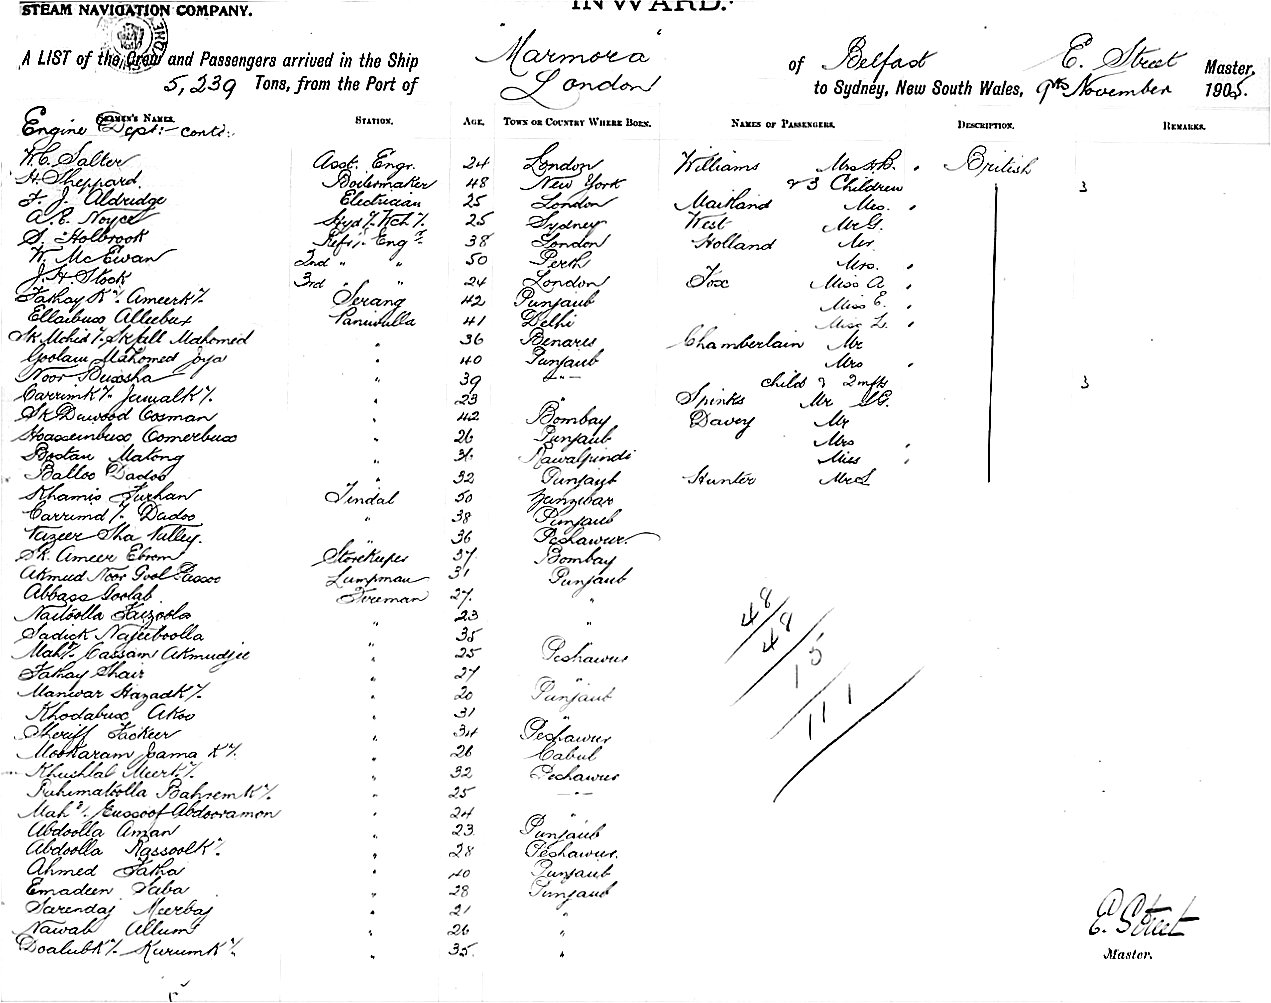 STEAM NAVIGATION COMPANY. INWARD.
A LIST of the Crew and Passengers arrived in the Ship "Marmora" of Belfast E. Street Master,
5,239 Tons, from the Port of London to Sydney, New South Wales, 9th November 1905.
SEAMEN'S NAMES. STATION. AGE. TOWN OR COUNTRY WHERE BORN. NAMES OF PASSENGERS. DESCRIPTION. REMARKS.
Engine Dept:- contd:-
W.C. Salter Asst. Engr. 24 London Williams Mrs H.B. British
H. Sheppard Boilermaker 48 New York & 3 Children 3
F. J. Aldridge Electrician 25 London Maitland Mrs.
A. E. Noyce 25 Sydney West Mr G.
S. Holbrook Refr. Engr. 38 London Holland Mr.
W. McEwan 2nd " " 50 Perth Mrs.
J. H. Stock 3rd " " 24 London Fox Miss A
Fakhay Kn. Ameerkn. Serang 42 Punjaub Miss E.
Ellaibux Alleebux Paniwulla 41 Delhi Miss L.
Mahomed " 36 Benares Chamberlain Mr
Goolam Mahomed Joya " 40 Punjaub Mrs
Noor Buxsha " 39 -"- child & 2 infts 3
Carrimkn. Jumalkn. " 23 " Spinks Mr
Sk Dawood Oosman " 42 Bombay Davey Mr
Hoosseinbux Comerbux " 26 Punjaub Mrs
Bostan Matong " 31 Rawalpindi Miss
Balloo Dadoo " 32 Punjaub Hunter
Khamis Furhan Tindal 50 Zanzibar
Carrimd Dadoo " 38 Punjaub
Nazeer Sha Vulley " 36 Peshawur
Sk. Ameer Ebram Storekeeper 37 Bombay
Akmud Noor Gool Lampman 31 Punjaub
Abbass Goolab Fireman 27 "
Naitoolla Faizoola " 23 "
Sadick Najeeboolla " 35
Mahd. Cassam Akmudjee " 25 Peshawur
Fakay Shair " 27 "
Manwar Hazadkn. " 20 Punjaub
Khodabux Akoo " 31 "
Sheriff Fackeer " 34 Peshawur
Mookaram Jama Kn. " 26 Cabul
Khushlal Meerkn. " 32 Peshawur
Bahremkn. " 25 -"-
Mahd. Eussoof Abdooramon " 24 "
Abdoolla Aman " 23 Punjaub
Abdoolla Rassoolkn. " 28 Peshawur.
Ahmed Fatha " 40 Punjaub
Emadeen Baba " 28 Punjaub
Sarendaj Meerbaj " 21 "
Nawab Allum " 26 "
Doalubkn. Kurumkn. " 35 "
48
48
15
111
E. Street
Master.